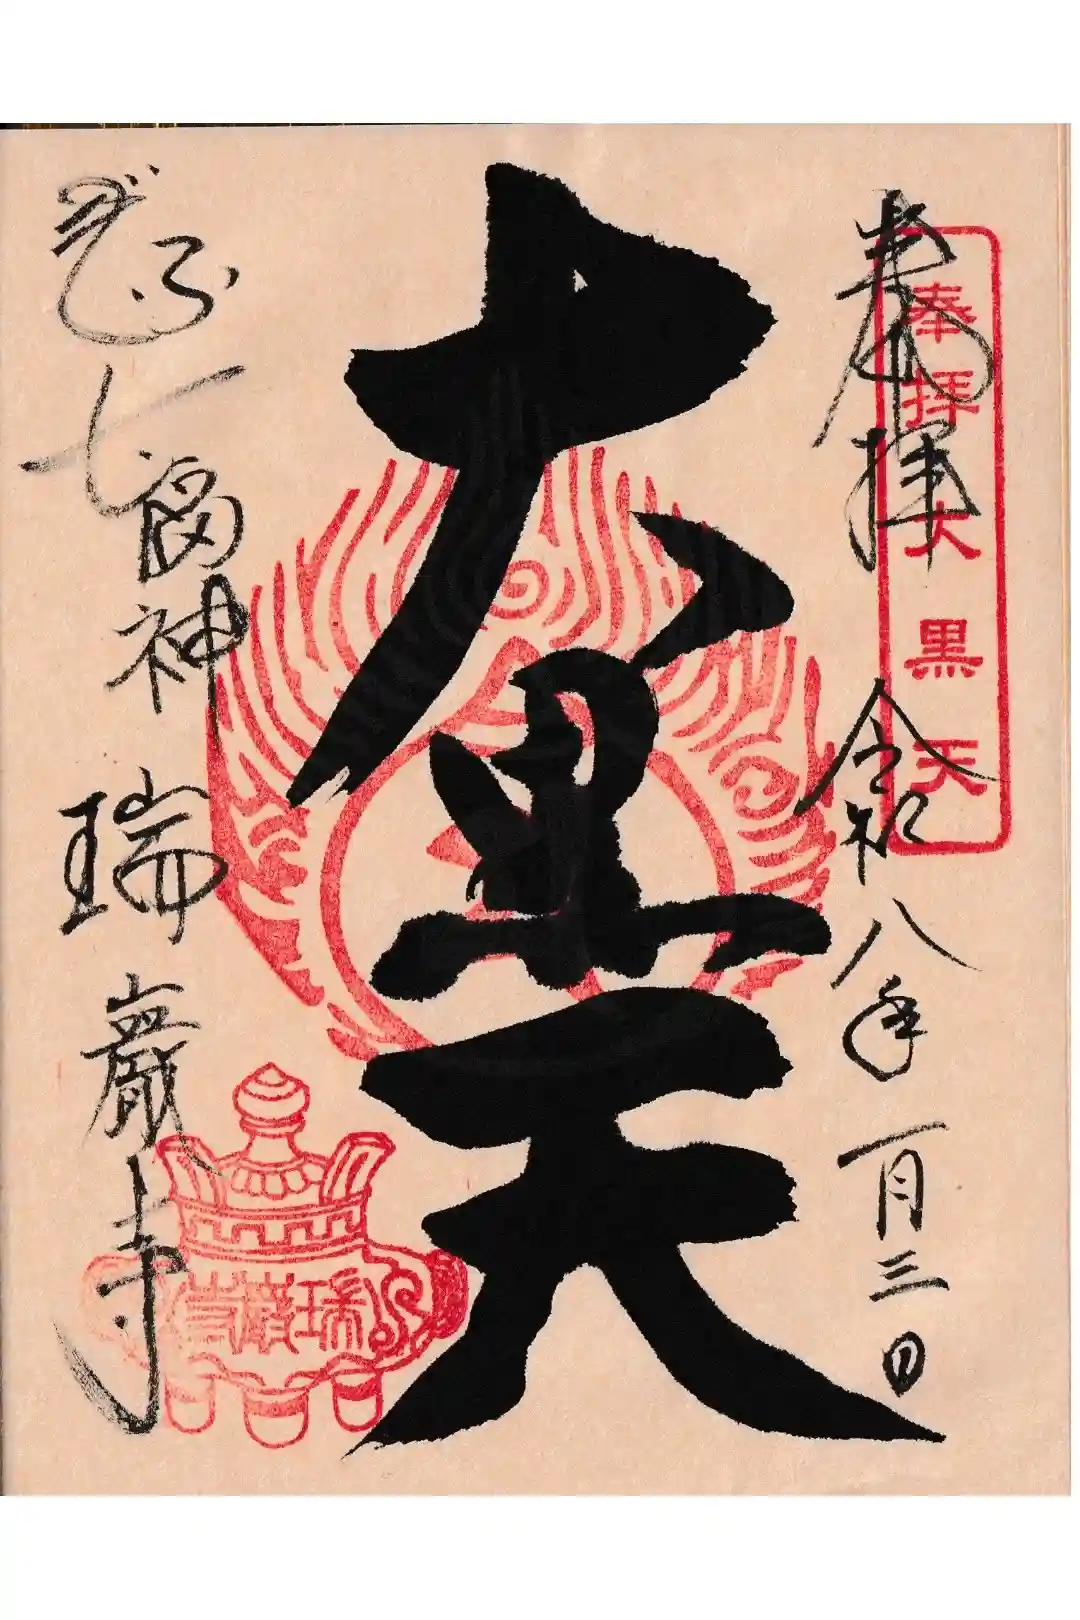 奉拝
令和八年一月三日
奉拝大黒天
大黒天
ぎふ七福神
瑞巖寺
瑞巖寺